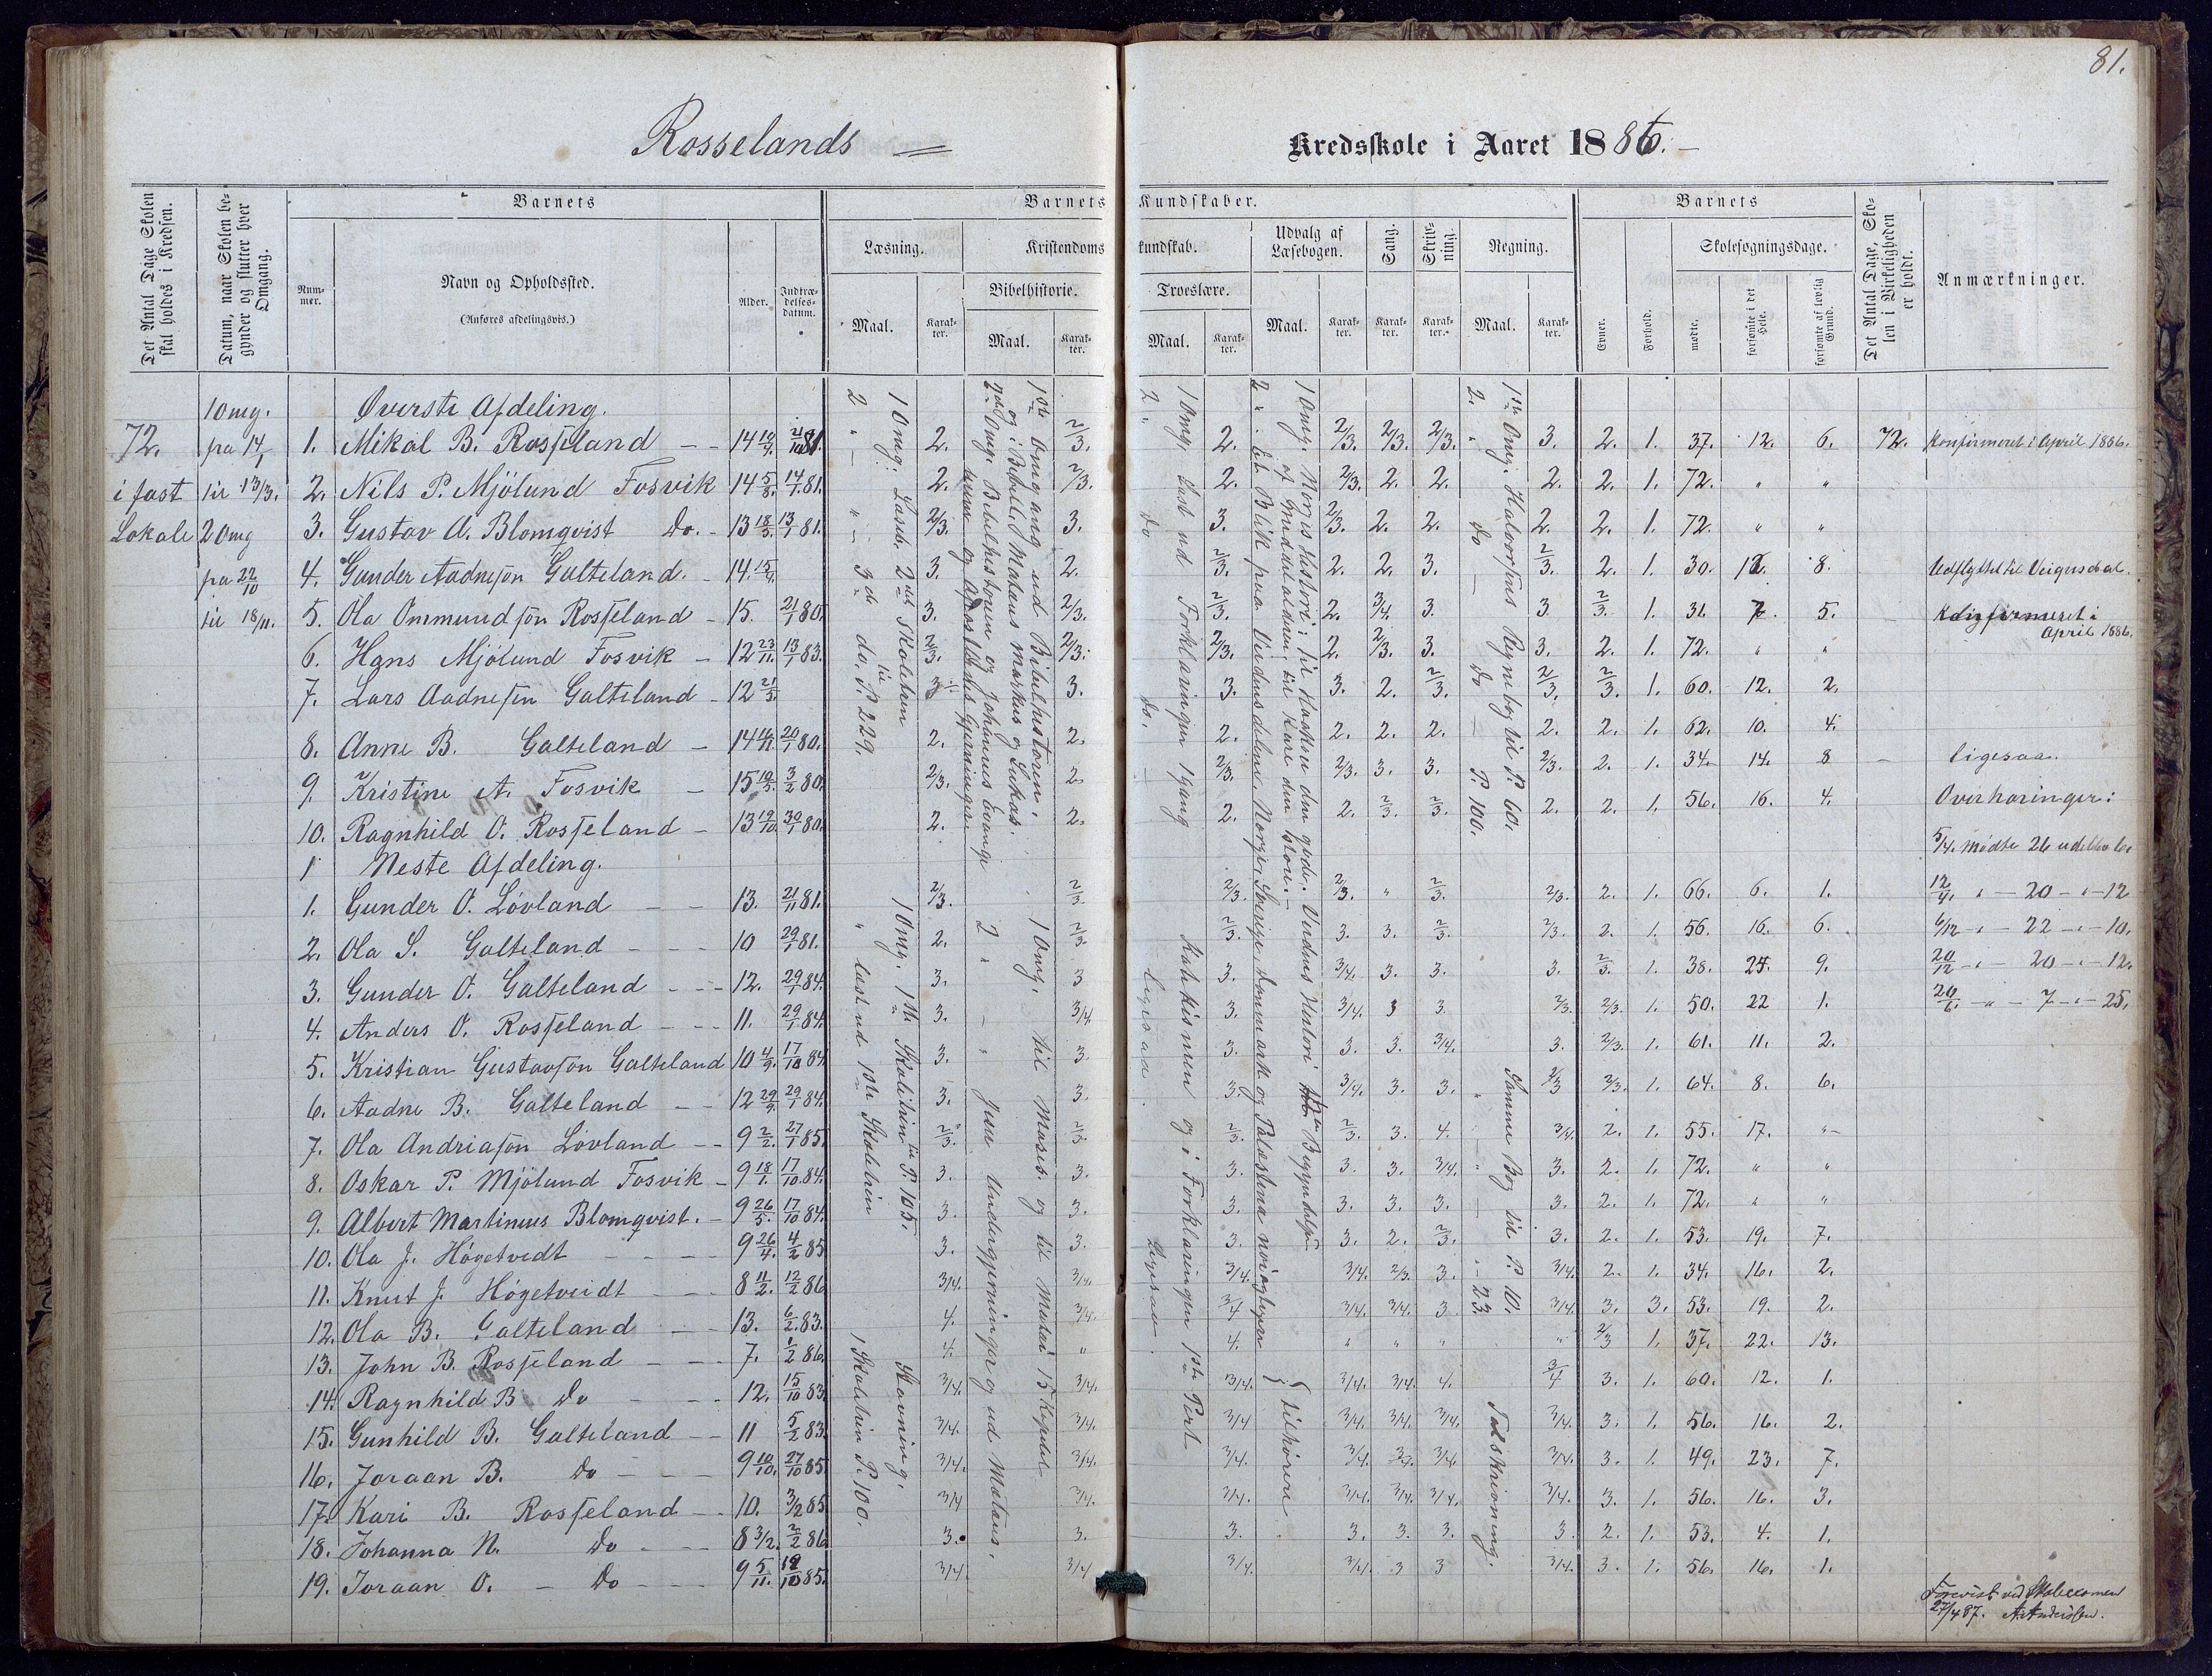 81.
Rosselands
Kredsskole i Aaret 1886.
Det Antal Dage Skolen skal holdes i Kredsen.
Datum, naar Skolen begynder og slutter hver Omgang.
Barnets
Nummer.
Navn og Opholdssted.
(Anføres afdelingsvis.)
Alder.
Indtrædelsesdatum.
Barnets Kundskaber.
Læsning.
Maal. Karakter.
Kristendomskundskab.
Bibelhistorie.
Maal. Karakter.
Troeslære.
Maal. Karakter.
Udvalg af Læsebogen.
Maal. Karakter.
Sang. Karakter.
Skrivning. Karakter.
Regning.
Maal. Karakter.
Barnets
Evner. Forhold.
Skolesøgningsdage.
mødte. forsømte i det Hele. forsømte af lovlig Grund.
Det Antal Dage, Skolen i Virkeligheden er holdt.
Anmærkninger.
72. i fast Lokale
1 Omg. fra 14/1 til 13/3.
2 Omg fra 22/10 til 18/11.
Øverste Afdeling.
1. Mikal B. Rosseland 2. 1. 37. 12. 6. 72. Konfirmeret i April 1886.
2. Nils P. Mjölund Fosvik 14 5/8. 14/1 81. 2. 2/3. 2. 2/3. 2. 2. 2. 2. 1. 72. " "
3. Gustav A. Blomqvist Do. 13 18/3. 13/1 81. 2/3. 3. 3. 2/3. 2. 2. 2. 2. 1. 72. " "
4. Gunder Aadnesøn Galteland. 3. 2. 2/3. 2. 2. 3. 2/3. 2. 1. 30. 8. Udflyttet til Veigusdal.
5. Ola Ommundsøn Rosseland 15. 21/1 80. 3. 2/3. 2/3. 2. 3/4. 3. 3 2/3. 1. 31. 7. 5. Konfirmeret i April 1886.
6. Hans Mjölund Fosvik 12 23/11. 13/1 83. 2/3. 2/3. 2/3. 2. 2/3. 3. 3. 2. 1. 72. " "
7. Lars Aadnesøn Galteland 12 21/3. 3. 3. 3. 2. 2/3. 2/3. 2/3. 1. 60. 12. 2.
8. Anne B. Galteland 20/1 80. 2. 2. 2. 2. 2. 2. 2. 2. 1. 62. 10. 4.
9. Kristine A. Fosvik 3/2 80. 2/3. 2. 2/3. 2/3. 3. 3. 2/3. 2. 1. 34. 14. 8 ligesaa.
10. Ragnhild O. Rosseland 13 19/10. 30/1 80. 2. 2. 2. 2. 2/3. 2/3. 2. 2. 1. 56. 16. 4. Overhøringer:
1 Neste Afdeling.
5/4. Mødte 26
1. Gunder O. Løvland 13. 21/11 81. 2/3. 2/3 2/3. 2/3. " 2/3. 2/3. 2. 1. 66. 6. 1. 12/4. " - 20 - " - 12
2. Ola S. Galteland 10 29/1 81. 2. 2/3 2/3. 3. 3. 2/3. 2/3. 2. 1. 56. 16. 6. 6/12 - " - 22 - " - 10.
3. Gunder O. Galteland 12. 29/1 84. 3. 3 3. 3/4. 3. 3. 3. 2/3. 1. 38. 9. 20/12 - " - 20 - " - 12.
4. Anders O. Rosseland 11. 29/1 84. 3. 3/4. 3. 3/4. 3 3. 2/3. 2/3. 1. 50. 22 1. - " - 7 - " - 25.
5. Kristian Gustavsøn Galteland 10 4/9. 17/10 84. 3. 3. 3. 3. 3. 3/4. 3. 2/3. 1. 61. 11. 2.
6. Aadne B. Galteland 12 29/9. 29/1 84. 3. 3. 3. 3/4. 3. 3. 2/3 2/3. 1. 64. 8. 6.
7. Ola Andriasøn Løvland 9 2/2. 27/1 85. 2/3. 2/3. 2/3. 2/3. 3. 4. 3/4. 2. 1. 55. 17. "
8. Oskar P. Mjölund Fosvik 9 18/1. 17/10 84. 3. 3. 3. 3. 3. 3/4. 3. 2. 1. 72. " "
9. Albert Martinius Blomqvist. 9 26/5. 17/10 84. 3. 3. 3. 3. 3. 3. 3. 2. 1. 72. " "
10. Ola J. Högetvedt 9 26/4. 4/2 85 3. 3. 3. 3. 2. 2/3. 3. 2. 1. 53. 19. 7.
11. Knut J. Högetveidt 8 11/2. 12/2 86 3/4. 3/4. 3/4. 3/4. 2/3. 3. 3/4. 2. 1. 34. 16. 2.
12. Ola B. Galteland 13. 6/2 83. 4. 3/4. 3/4 3/4. 3/4. 3 3/4. 3. 3. 53. 19. 2.
13. John B. Rosseland 7. 1/2 86. 4. " 4. " " " " 2/3 1. 37. 22. 13.
14. Ragnhild B Do 12. 15/10 83. 3/4. 3/4. 3/4. 3/4. 3/4. 4. 3/4 3. 1. 60. 12. 1.
15. Gunhild B. Galteland 11 5/2 83. 3/4. 3/4. 3/4 3/4. 3/4. 3/4. 3/4. 3. 1. 56. 16. 2.
16. Joraan B. Do 9 10/10. 27/10 85. 3/4. 3/4. 3/4. 3/4. 3/4. 3/4. 3. 1. 49. 23. 7.
17. Kari B. Rosseland 10. 3/2 85. 3/4 3/4. 3/4. 3/4. 3/4. 3/4. 3/4. 3. 1. 56. 16. 3.
18. Johanna N. Do 8 3/2. 2/2 86 3. 3. 3. 3. 3. 3. 3. 2. 1. 53. 4. 1.
19. Joraan O. Do 9 5/11. 3/4. 3/4 3/4. 3/4. 3 3 3/4. 3. 1. 56. 16. 1.
1 Omg: Læseb. 2det Skoletrin
2 " - " - 3de do. til P. 229.
1ste Omgang ud Bibelhistorien.
og i Bibelen Mataus Markus og Lukas.
2den Omg. Bibelhistorien og Johannes Evange
1 Omg. læst ud Forklaringen 1 gang
2 " Do do.
1 Omg. Norges Historie; til Haakon den gode. Verdens Historie
1ste Omg. Halvorsens Regnebog til P. 60.
2. " do do P. 100.
1 Omg. 1ste Skoletrin til P. 105.
2 " læst ud 1ste Skoletrin
1 Omg. til Moses. og til Matæi 15 Kapitel
2 " Jesu Undergjerninger og ud Matæus.
Katekismen og i Forklaringen 1ste Part
ligesaa.
ligesaa.
Samme Bog til P. 10.
" - 23.
Stavning.
1 Skoletrin P. 100.
tilhörere
Talskrivning.
Forevist ved Skoleexamen
27/4 87. A. Anderssen.